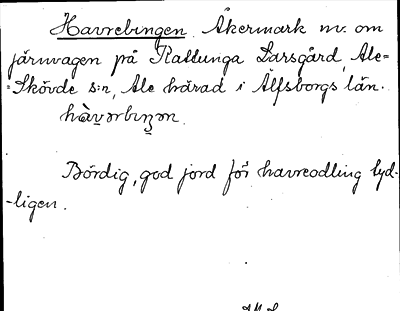 Havrebingen. Åkermark nv. om
järnvagen på Kattunga Larsgård, Ale-
-Skövde s:n, Ale härad i Älfsborgs län.
Bördig, god jord för havreodling tyd-
-ligen.